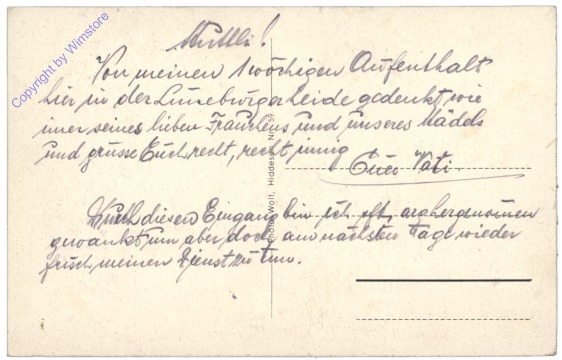 Mutti!
Von meinen 1wöchigen Aufenthalt
hier in der Lüneburgerheide gedenkt wie
imer seines lieben Frauchens und unseres Mädels
und grüsse Euch recht, recht innig
Euer Vati.
Durch diesen Eingang bin ich oft arg hergenomen
gewankt um aber doch am nächsten Tage wieder
frisch meinen Dienst zu tun.
Photo Wolf, Hiddesen Nr. 59
Copyright by Wimstore